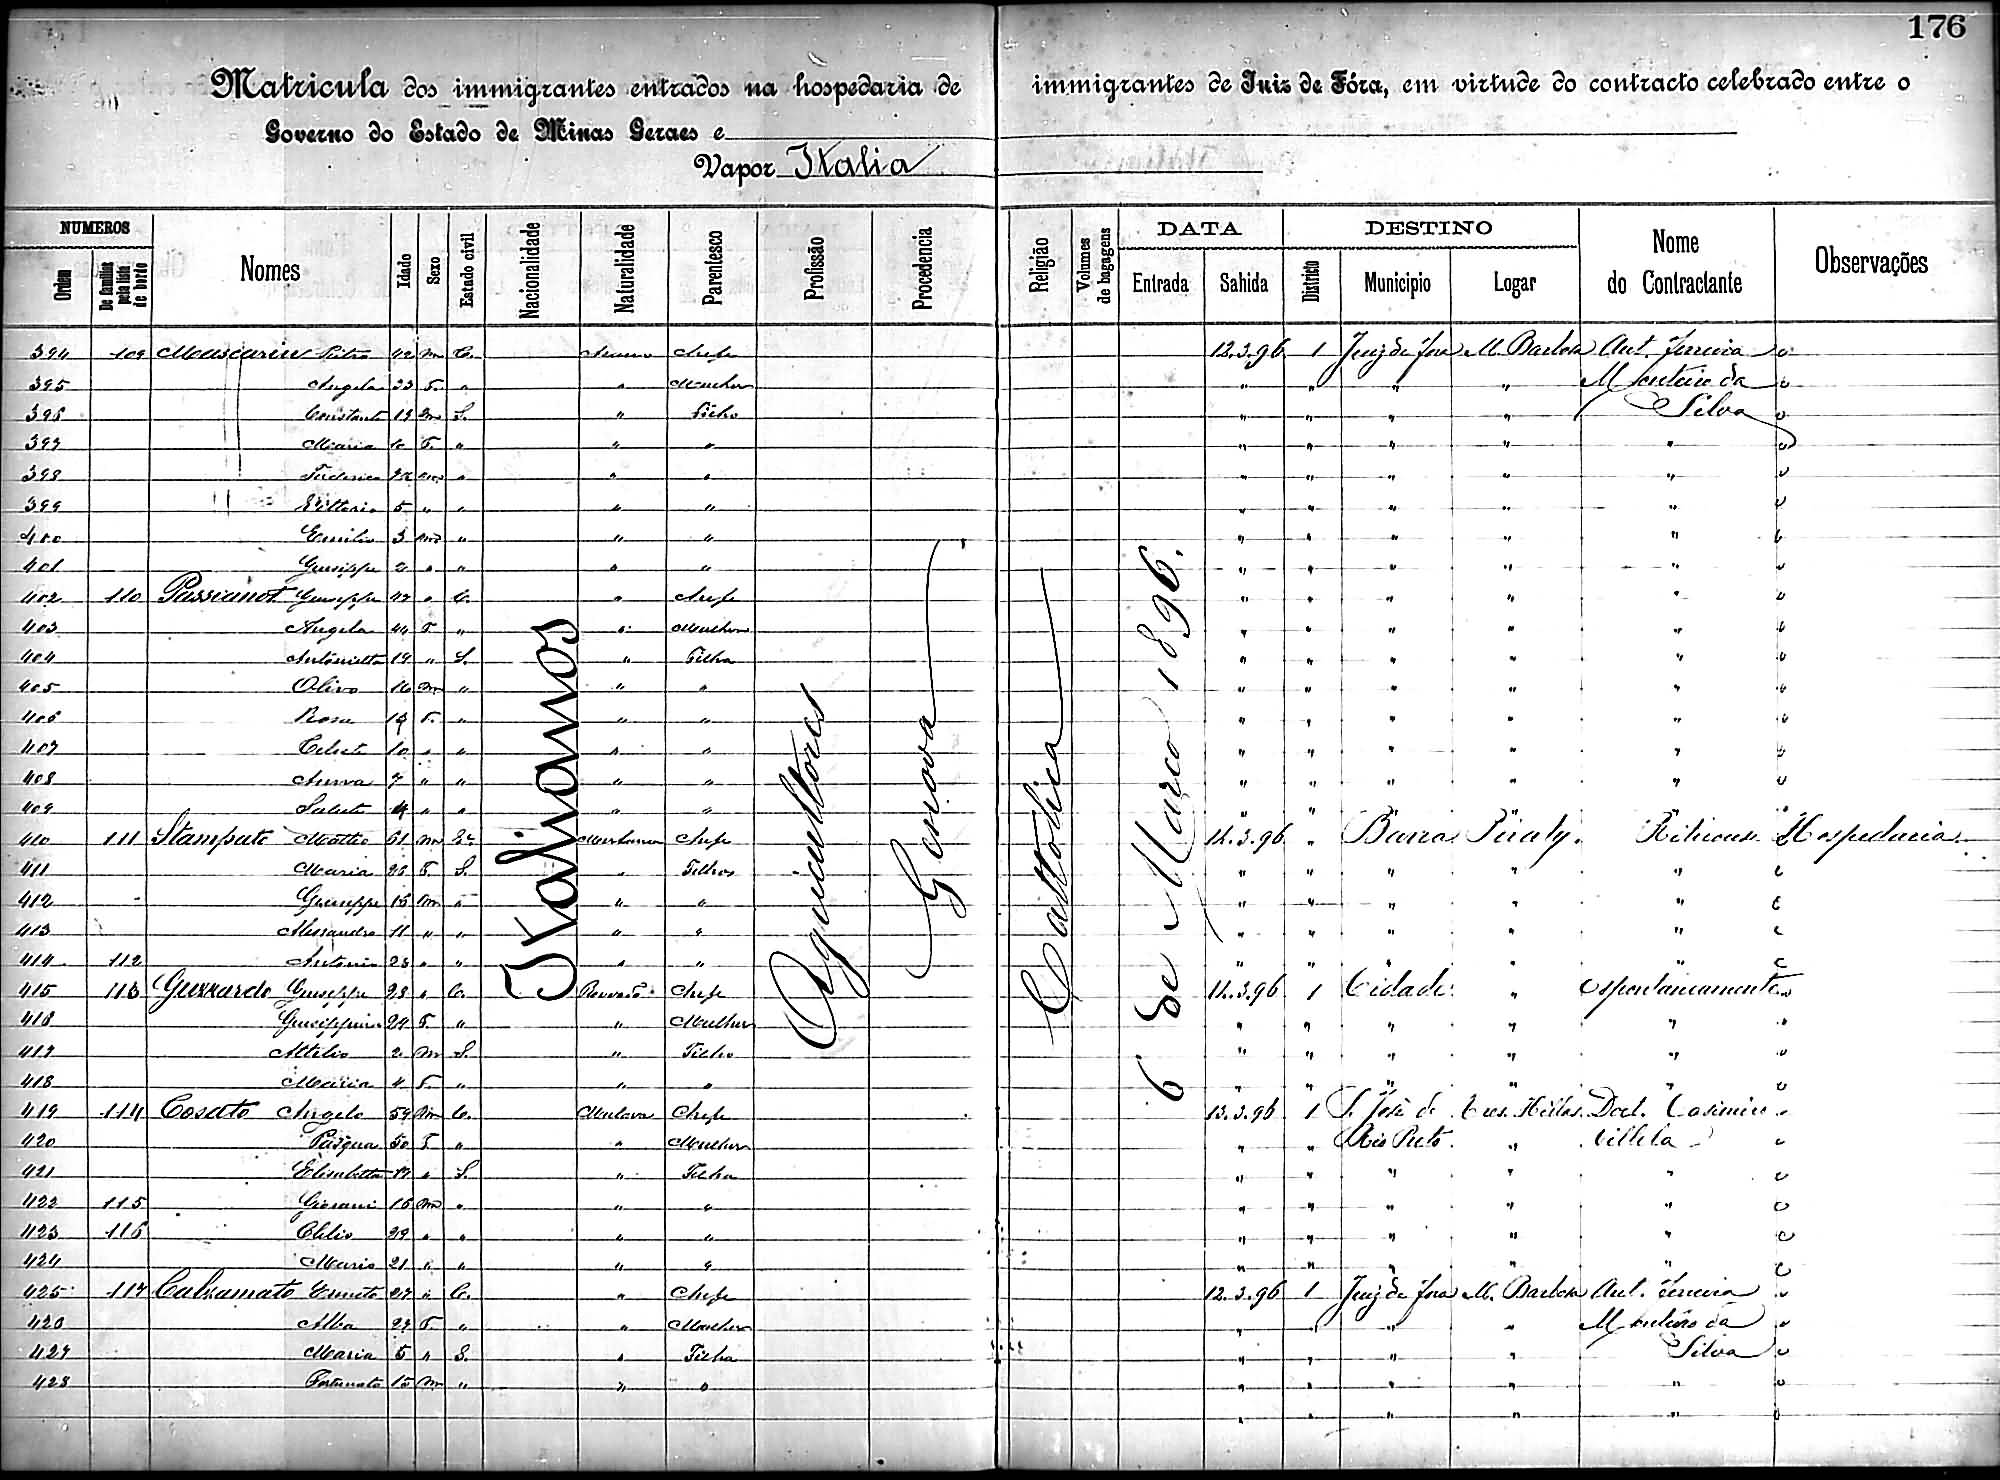 176
Matricula dos immigrantes entrados na hospedaria de immigrantes de Juiz de Fóra, em virtude do contracto celebrado entre o
Governo do Estado de Minas Geraes e
Vapor Italia
NUMEROS DATA DESTINO
Ordem De familias pela lista de bordo Nomes Idade Sexo Estado civil Nacionalidade Naturalidade Parentesco Profissão Procedencia Religião Volumes de bagagens Entrada Sahida Districto Municipio Logar Nome do Contractante Observações
Italianos Agricultores Genova Cattolica 6 de Março 1896.
394 109 Pietro 42 m C. Chefe 12.3.96 1 Juiz de fora M. Barbosa Ant. Ferreira
395 Angela 33 F. " " Mulher " " " " Monteiro da
396 m S. " Filho " " " " Silva
397 Maria F. " " " " " " " "
398 " " " " " " " "
399 Vittorio 5 " " " " " " " " "
400 Emilio 3 m " " " " " " " "
401 Giuseppe 2 " " " " " " " " "
402 110 Giuseppe 47 " C. " Chefe " " " " "
403 Angela 44 F. " " Mulher " " " " "
404 Antonietta 19 " S. " Filha " " " " "
405 Olivo 16 m " " " " " " " "
406 Rosa F. " " " " " " " "
407 Celeste 10 " " " " " " " " "
408 7 " " " " " " " " "
409 4 " " " " " " " " "
410 111 Stampato Matteo 61 m Chefe 11.3.96 " Barra Piraly. Hospedaria
411 Maria F. S. " Filhos " " " " "
412 Giuseppe 16 m " " " " " " " "
413 Alessandro 11 " " " " " " " " "
414 112 Antonio 28 " " " " " " " " "
415 113 Guzzardo Giuseppe 28 " C. Chefe 11.3.96 1 Cidade " Espontaneamente
416 Giuseppina 24 F. " " Mulher " " " " "
417 Attilio 2 m S. " Filho " " " " "
418 Maria 4 F. " " " " " " " "
419 114 Cosato Angelo 59 m C. Chefe 13.3.96 1 S. José do Tres Hillas Doct. Casimiro
420 Pasqua 50 F. " " Mulher " " Rio Preto " Villela
421 Elisabetta 19 " S. " Filha " " " " "
422 115 Giovani 16 m " " " " " " " "
423 116 Clelio 29 " " " " " " " " "
424 Mario 21 " " " " " " " " "
425 117 Calzamato 27 " C. " Chefe 12.3.96 1 Juiz de fora M. Barbosa Ant. Ferreira
426 Alba 27 F. " " Mulher " " " " Monteiro da
427 Maria 5 " S. " Filha " " " " Silva
428 Fortunato 15 m " " " " " " " "
" " " "